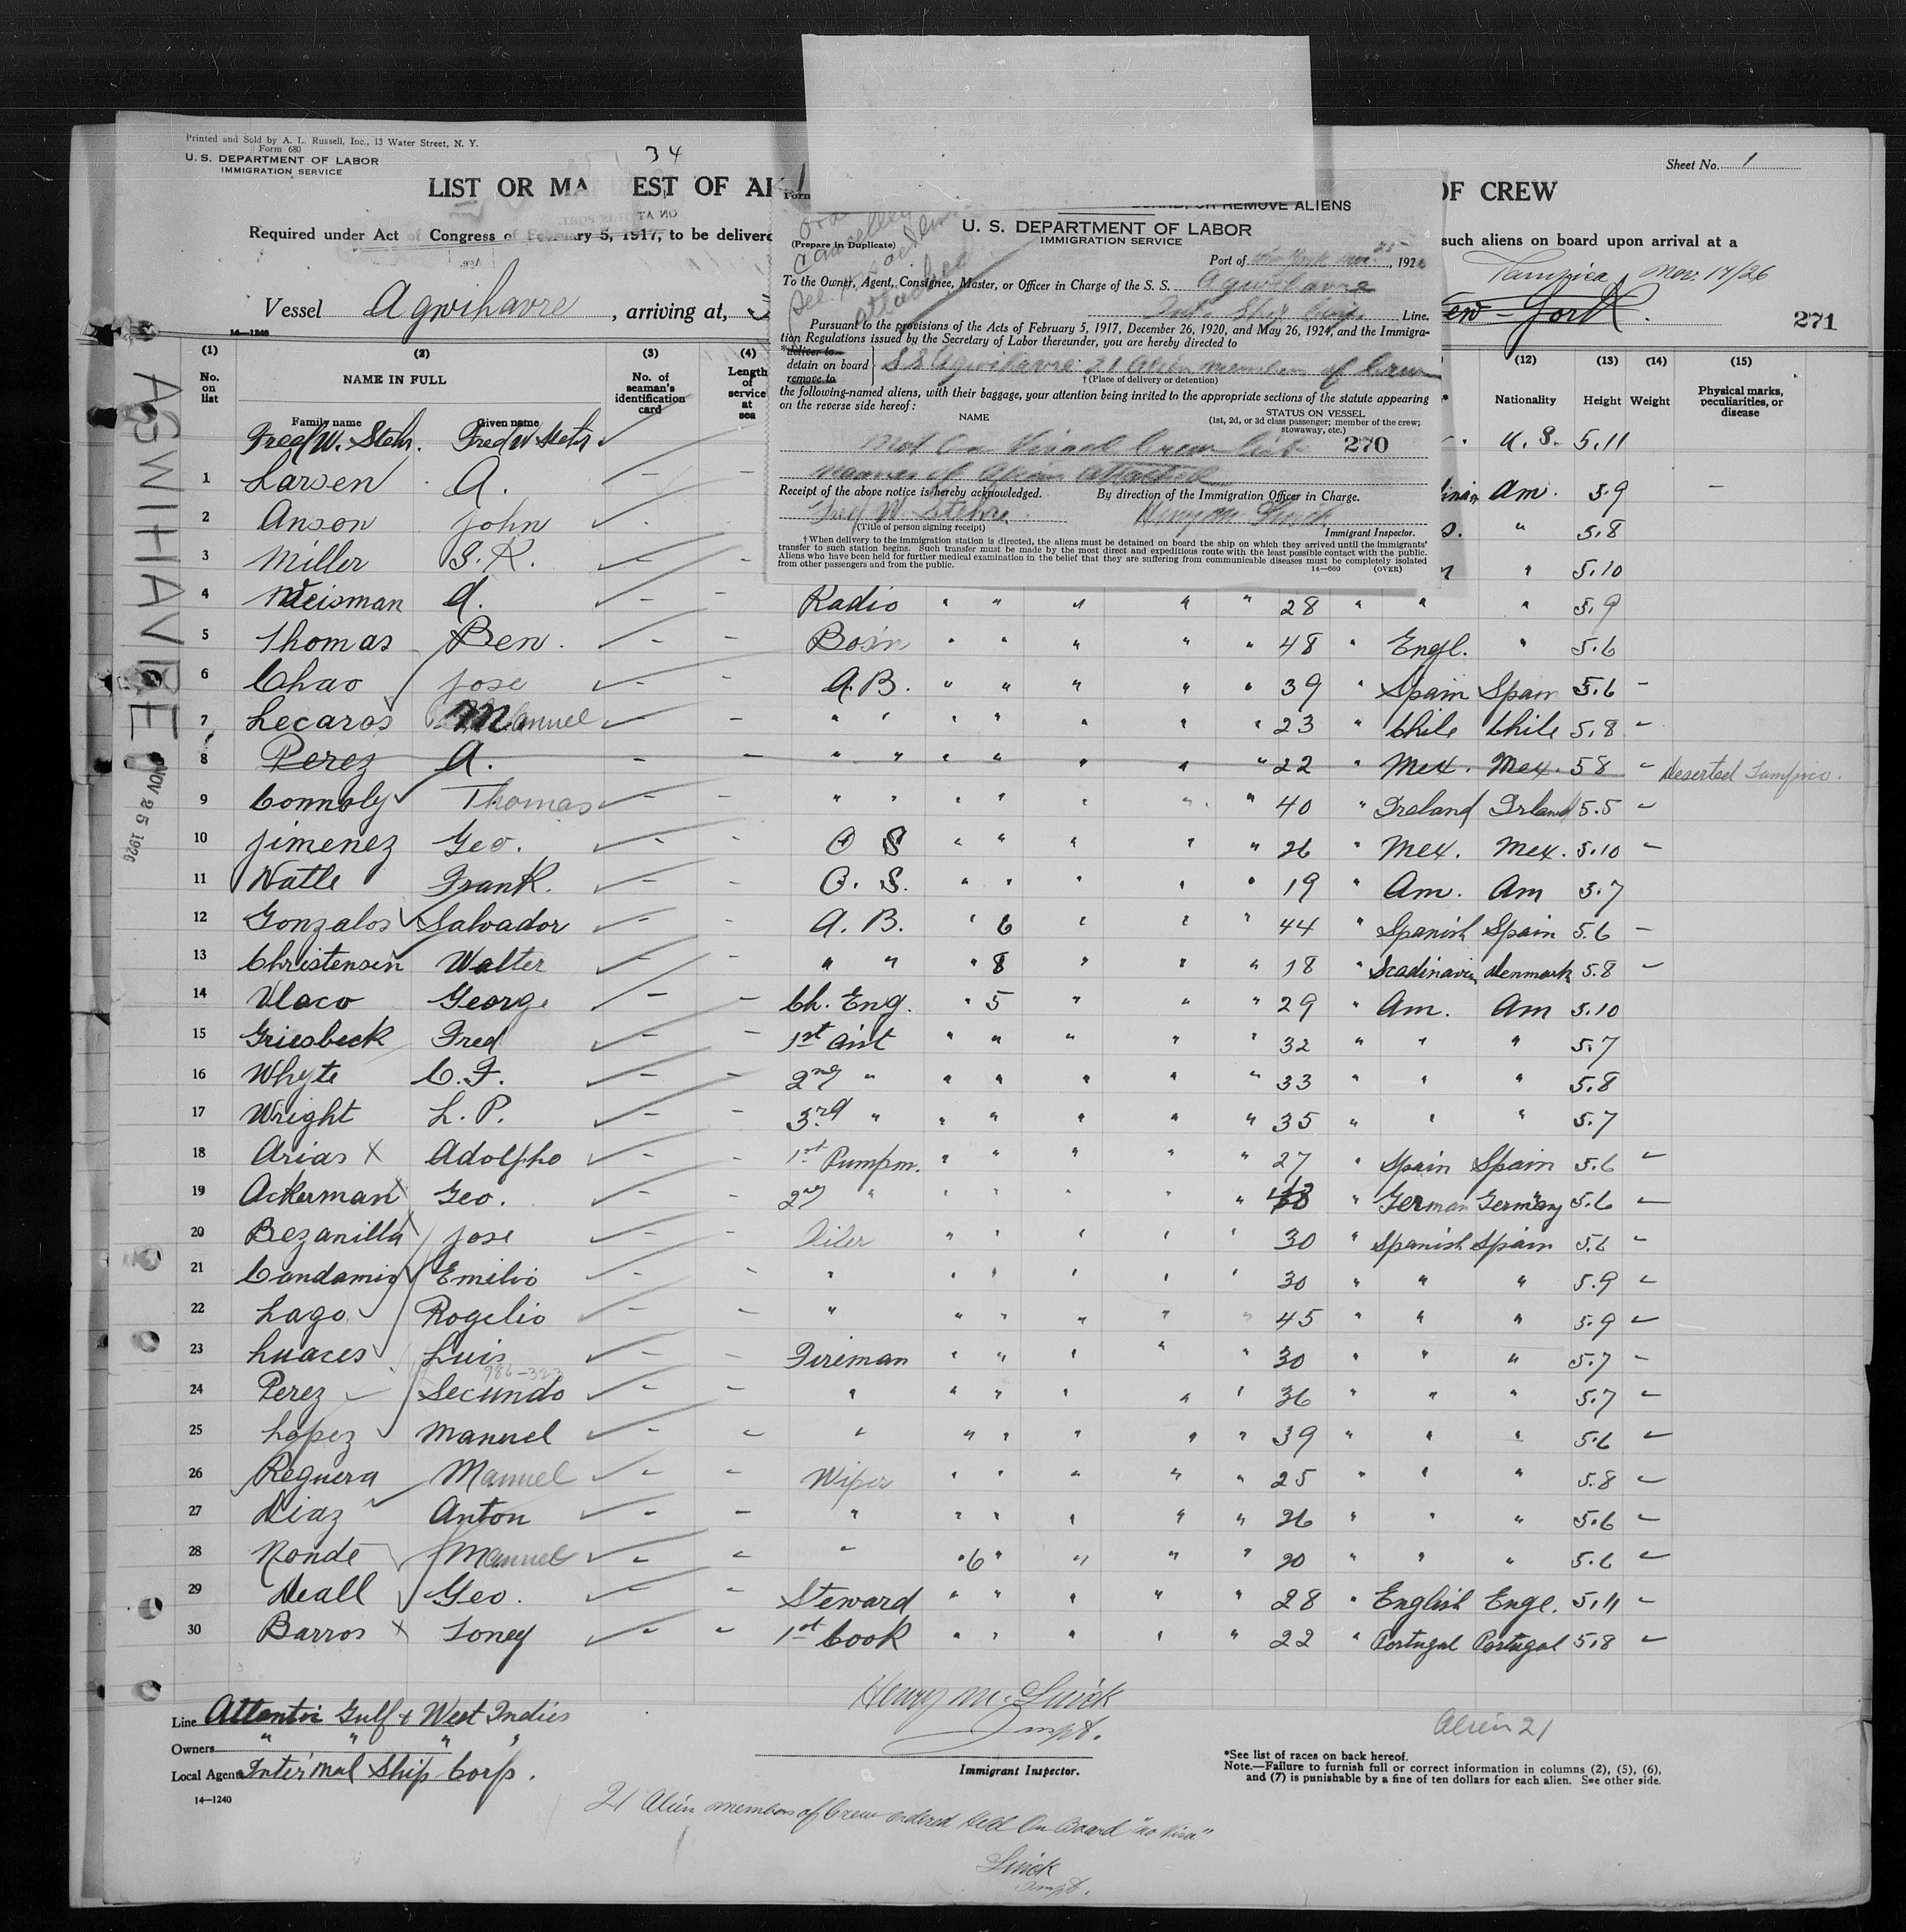 Printed and Sold by A. L. Russell, Inc., 13 Water Street, N. Y.
Form 680
U. S. DEPARTMENT OF LABOR
IMMIGRATION SERVICE
34
Sheet No. 1
LIST OR MA EST OF AL
OF CREW
Required under Act of Congress of February 5, 1917, to be delivere
such aliens on board upon arrival at a
Tampico Nov. 17/26
Vessel Agwihavre , arriving at,
ew-York.
271
14—1240
Form
BOARD, OR REMOVE ALIENS
U. S. DEPARTMENT OF LABOR
IMMIGRATION SERVICE
(Prepare in Duplicate)
cancelled
See
attached
Port of New York Nov. 25, 1926
To the Owner, Agent, Consignee, Master, or Officer in Charge of the S. S. Agwihavre
Int. Ship Corp. Line.
Pursuant to the provisions of the Acts of February 5, 1917, December 26, 1920, and May 26, 1924, and the Immigra-
tion Regulations issued by the Secretary of Labor thereunder, you are hereby directed to
*deliver to
detain on board
remove to
SS Agwihavre 21 Alien members of Crew
†(Place of delivery or detention)
the following-named aliens, with their baggage, your attention being invited to the appropriate sections of the statute appearing
on the reverse side hereof:
NAME
STATUS ON VESSEL
(1st, 2d, or 3d class passenger; member of the crew; stowaway, etc.)
Not On Visaed Crew list 270
names of Aliens attached
Receipt of the above notice is hereby acknowledged. By direction of the Immigration Officer in Charge.
Fred W Stehr
(Title of person signing receipt)
Immigrant Inspector.
†When delivery to the immigration station is directed, the aliens must be detained on board the ship on which they arrived until the immigrants'
transfer to such station begins. Such transfer must be made by the most direct and expeditious route with the least possible contact with the public.
Aliens who have been held for further medical examination in the belief that they are suffering from communicable diseases must be completely isolated
from other passengers and from the public.
14—660 (OVER)
AGWIHAVRE
NOV 25 1926
(1) (2) (3) (4) (12) (13) (14) (15)
No. on list
NAME IN FULL
Family name Given name
No. of seaman's identification card
Length of service at sea
Nationality Height Weight
Physical marks, peculiarities, or disease
Fred W. Stehr. Fred W Stehr U. S. 5.11
1 Larsen A. — — Am. 5.9 —
2 Anson John " 5.8
3 Miller S. K. — — " 5.10
4 Weisman A. — — Radio " " " " " 28 " " " 5.9
5 Thomas Ben. — — Bosn " " " " " 48 " Engl. " 5.6
6 Chao Jose — — A.B. " " " " " 39 " Spain Spain 5.6 —
7 Lecaros Manuel — — " " " " " " 23 " Chile Chile 5.8
8 Perez A. — — " " " " " " " 22 " Mex. Mex. 5 8 Deserted Tampico.
9 Connoly Thomas — — " " " " " " " 40 " Ireland Irland 5.5
10 Jimenez Geo. — — O S " " " " " 26 " Mex. Mex. 5.10
11 Natle Frank. — — O. S. " " " " " 19 " Am. Am 5.7
12 Gonzalos Salvador — — A. B. " 6 " " " 44 " Spanish Spain 5.6 —
13 Christensen Walter — — " " " 8 " " " 18 " Scadinavien Denmark 5.8
14 Vlaco George — — Ch. Eng. " 5 " " " 29 " Am. Am 5.10
15 Griesbeck Fred — — 1st Asst " " " " " 32 " " " 5.7
16 Whyte C. F. — — 2nd " " " " " " 33 " " " 5.8
17 Wright L. P. — — 3rd " " " " " " 35 " " " 5.7
18 Arias X Adolpho — — 1st Pumpm. " " " " " 27 " Spain Spain 5.6
19 Ackerman X Geo. — — 2nd " " " " " " " German Germany 5.6
20 Bezanilla Jose — — Oiler " " " " " 30 " Spanish Spain 5.6
21 Candamio Emilio — — " " " " " " 30 " " " 5.9
22 Lago Rogelio — — " " " " " " 45 " " " 5.9
23 Luaces Luis — — Fireman " " " " " 30 " " " 5.7
24 Perez Secundo — — " " " " " " 36 " " " 5.7
25 Lopez Manuel — — " " " " " " 39 " " " 5.6
26 Reguera Manuel — — Wiper " " " " " 25 " " " 5.8
27 Diaz Anton — — " " " " " " 26 " " " 5.6
28 Ronde Manuel — — " " 6 " " " " 20 " " " 5.6
29 Neall Geo. — — Steward " " " " " 28 " English Engl. 5.11
30 Barros X Toney — — 1st Cook " " " " " 22 " Portugal Portugal 5.8
Henry M. Quick
Inspt.
Alien 21
Line Atlantic Gulf & West Indies
Owners " " " "
Local Agents Internal Ship Corp.
Immigrant Inspector.
*See list of races on back hereof.
Note.—Failure to furnish full or correct information in columns (2), (5), (6),
and (7) is punishable by a fine of ten dollars for each alien. See other side.
14—1240
21 Alien members of Crew ordered Held On Board "no visa"
Quick
Inspt.